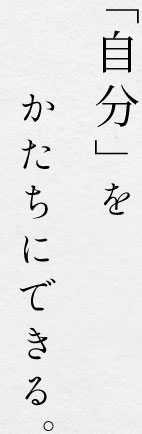 「自分」を
かたちにできる。